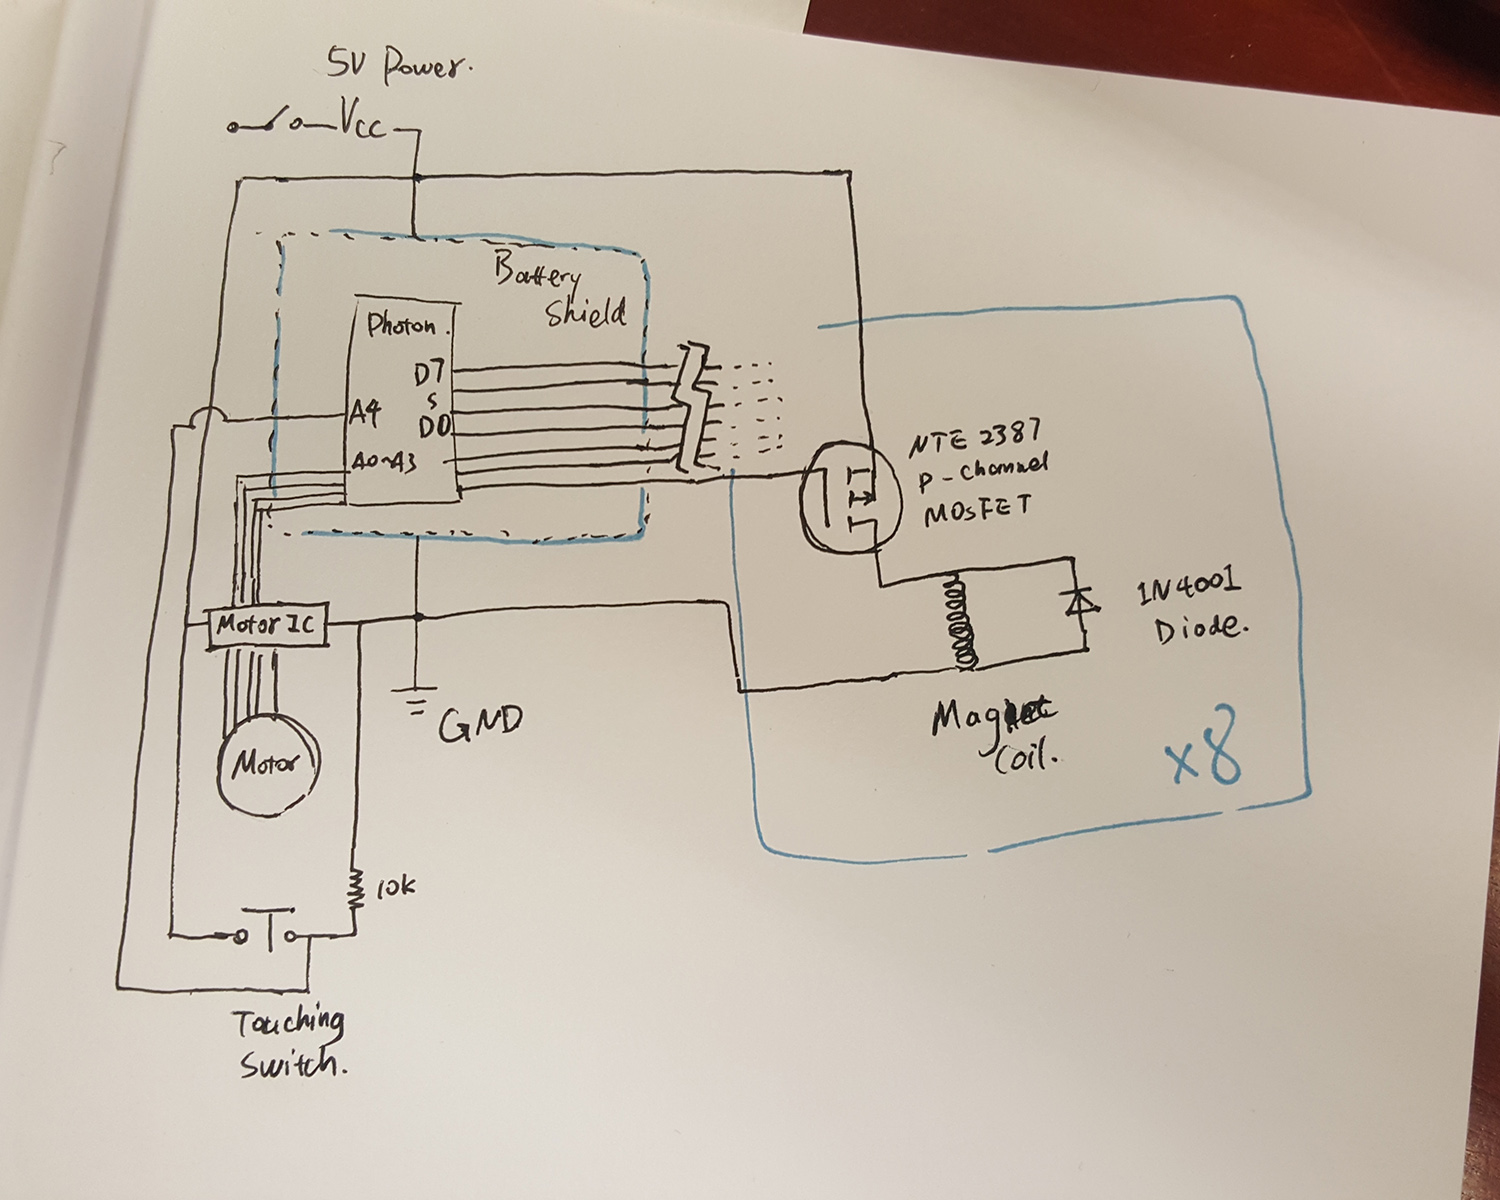 5V Power.
Vcc
Battery
Shield
Photon.
D7
S
D0
A4
A0~A3
NTE 2387
P-Channel
MOSFET
1N4001
Diode.
Motor IC
GND
Magnet
Coil.
x8
Motor
10k
Touching
Switch.